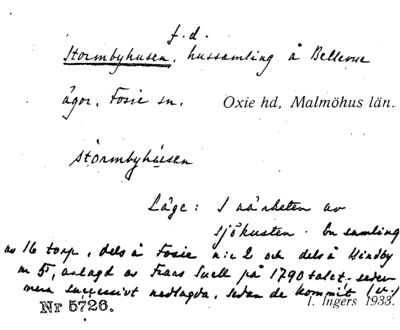 f.d.
Stormbyhusen, hussamling å Bellevue
ägor, Fosie sn. Oxie hd, Malmöhus län.
stormbyhúsen
Läge: I närheten av
sjökusten. En samling
av 16 torp, dels å Fosie n:r 2 och dels å Hindby
nr 5, anlagd av Frans Suell på 1790 talet - sedermera
successivt nedlagda, sedan de kommit i
Nr 5726. I. Ingers 1933.